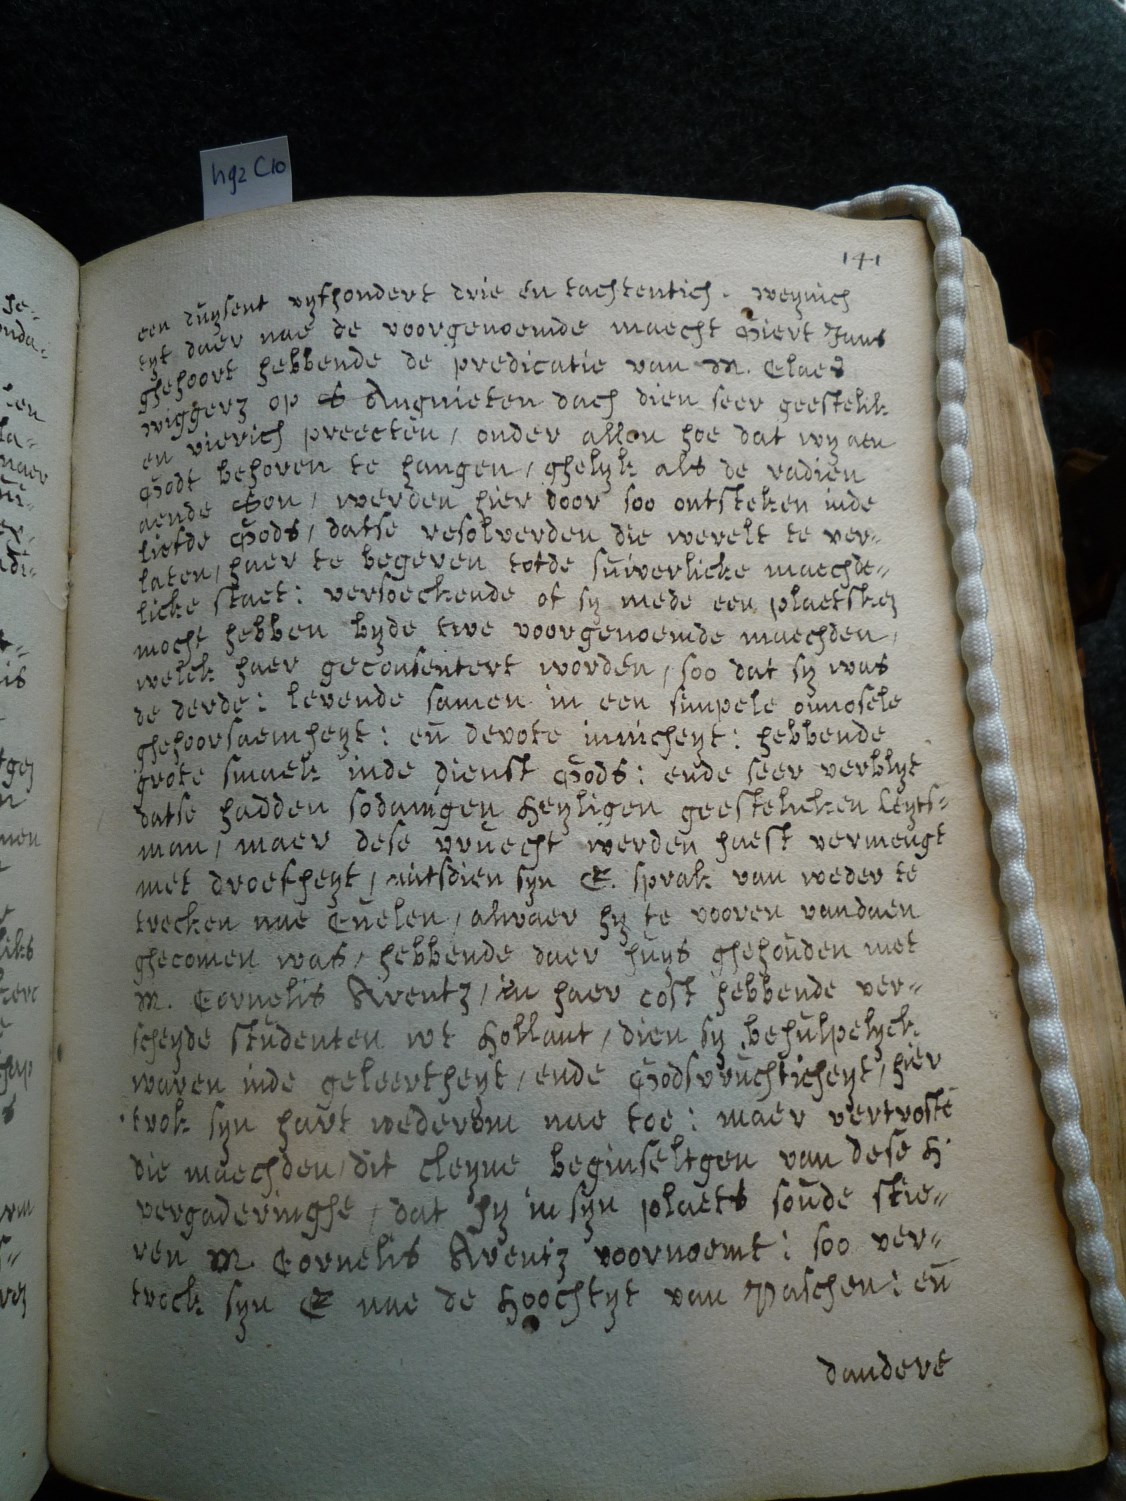 hg2 C10
141
een duijsent vijfhondert drie en tachtentich. weijnich
tijt daer nae de voorgenoemde maecht Giert Jans
ghehoort hebbende de predicatie van M. Claes
wiggerz op S Angnieten dach dien seer geestelik
en vierich preecten, onder allen hoe dat wij aen
Godt behoren te hangen, ghelijk als de radien
aende Son, werden hier door soo ontsteken inde
liefde Gods, datse resolverden die werelt te ver-
laten, haer te begeven totde suiverlicke maechde-
licke staet: versoeckende of sij mede een plaetsken
mocht hebben bijde twe voorgenoemde maechden,
welck haer geconsentert worden, soo dat sij was
de derde: levende samen in een simpele onnosele
ghehoorsaemheijt: en devote innicheijt: hebbende
grote smaek inde dienst Gods: ende seer verblijt
datse hadden sodanigen Heijligen geestelicken leijts-
man, maer dese vruecht werden haest vermengt
met droefheijt, mitsdien sijn E. sprak van weder te
trecken nae Cuelen, alwaer hij te vooren vandaen
ghecomen was, hebbende daer huijs ghehouden met
M. Cornelis Arentz, in haer cost hebbende ver-
scheijde studenten wt Hollant, dien sij behulpelijck
waren inde geleertheijt, ende Godsvruchticheijt, hier
trok sijn hart wederom nae toe: maer vertroste
die maechden, dit cleijne beginseltgen van dese H.
vergaderinghe, dat hij in sijn plaets soude stie-
ren M. Cornelis Arentz voornoemt: soo ver-
trock sijn E nae de Hoochtijt van Paschen: en
dandere